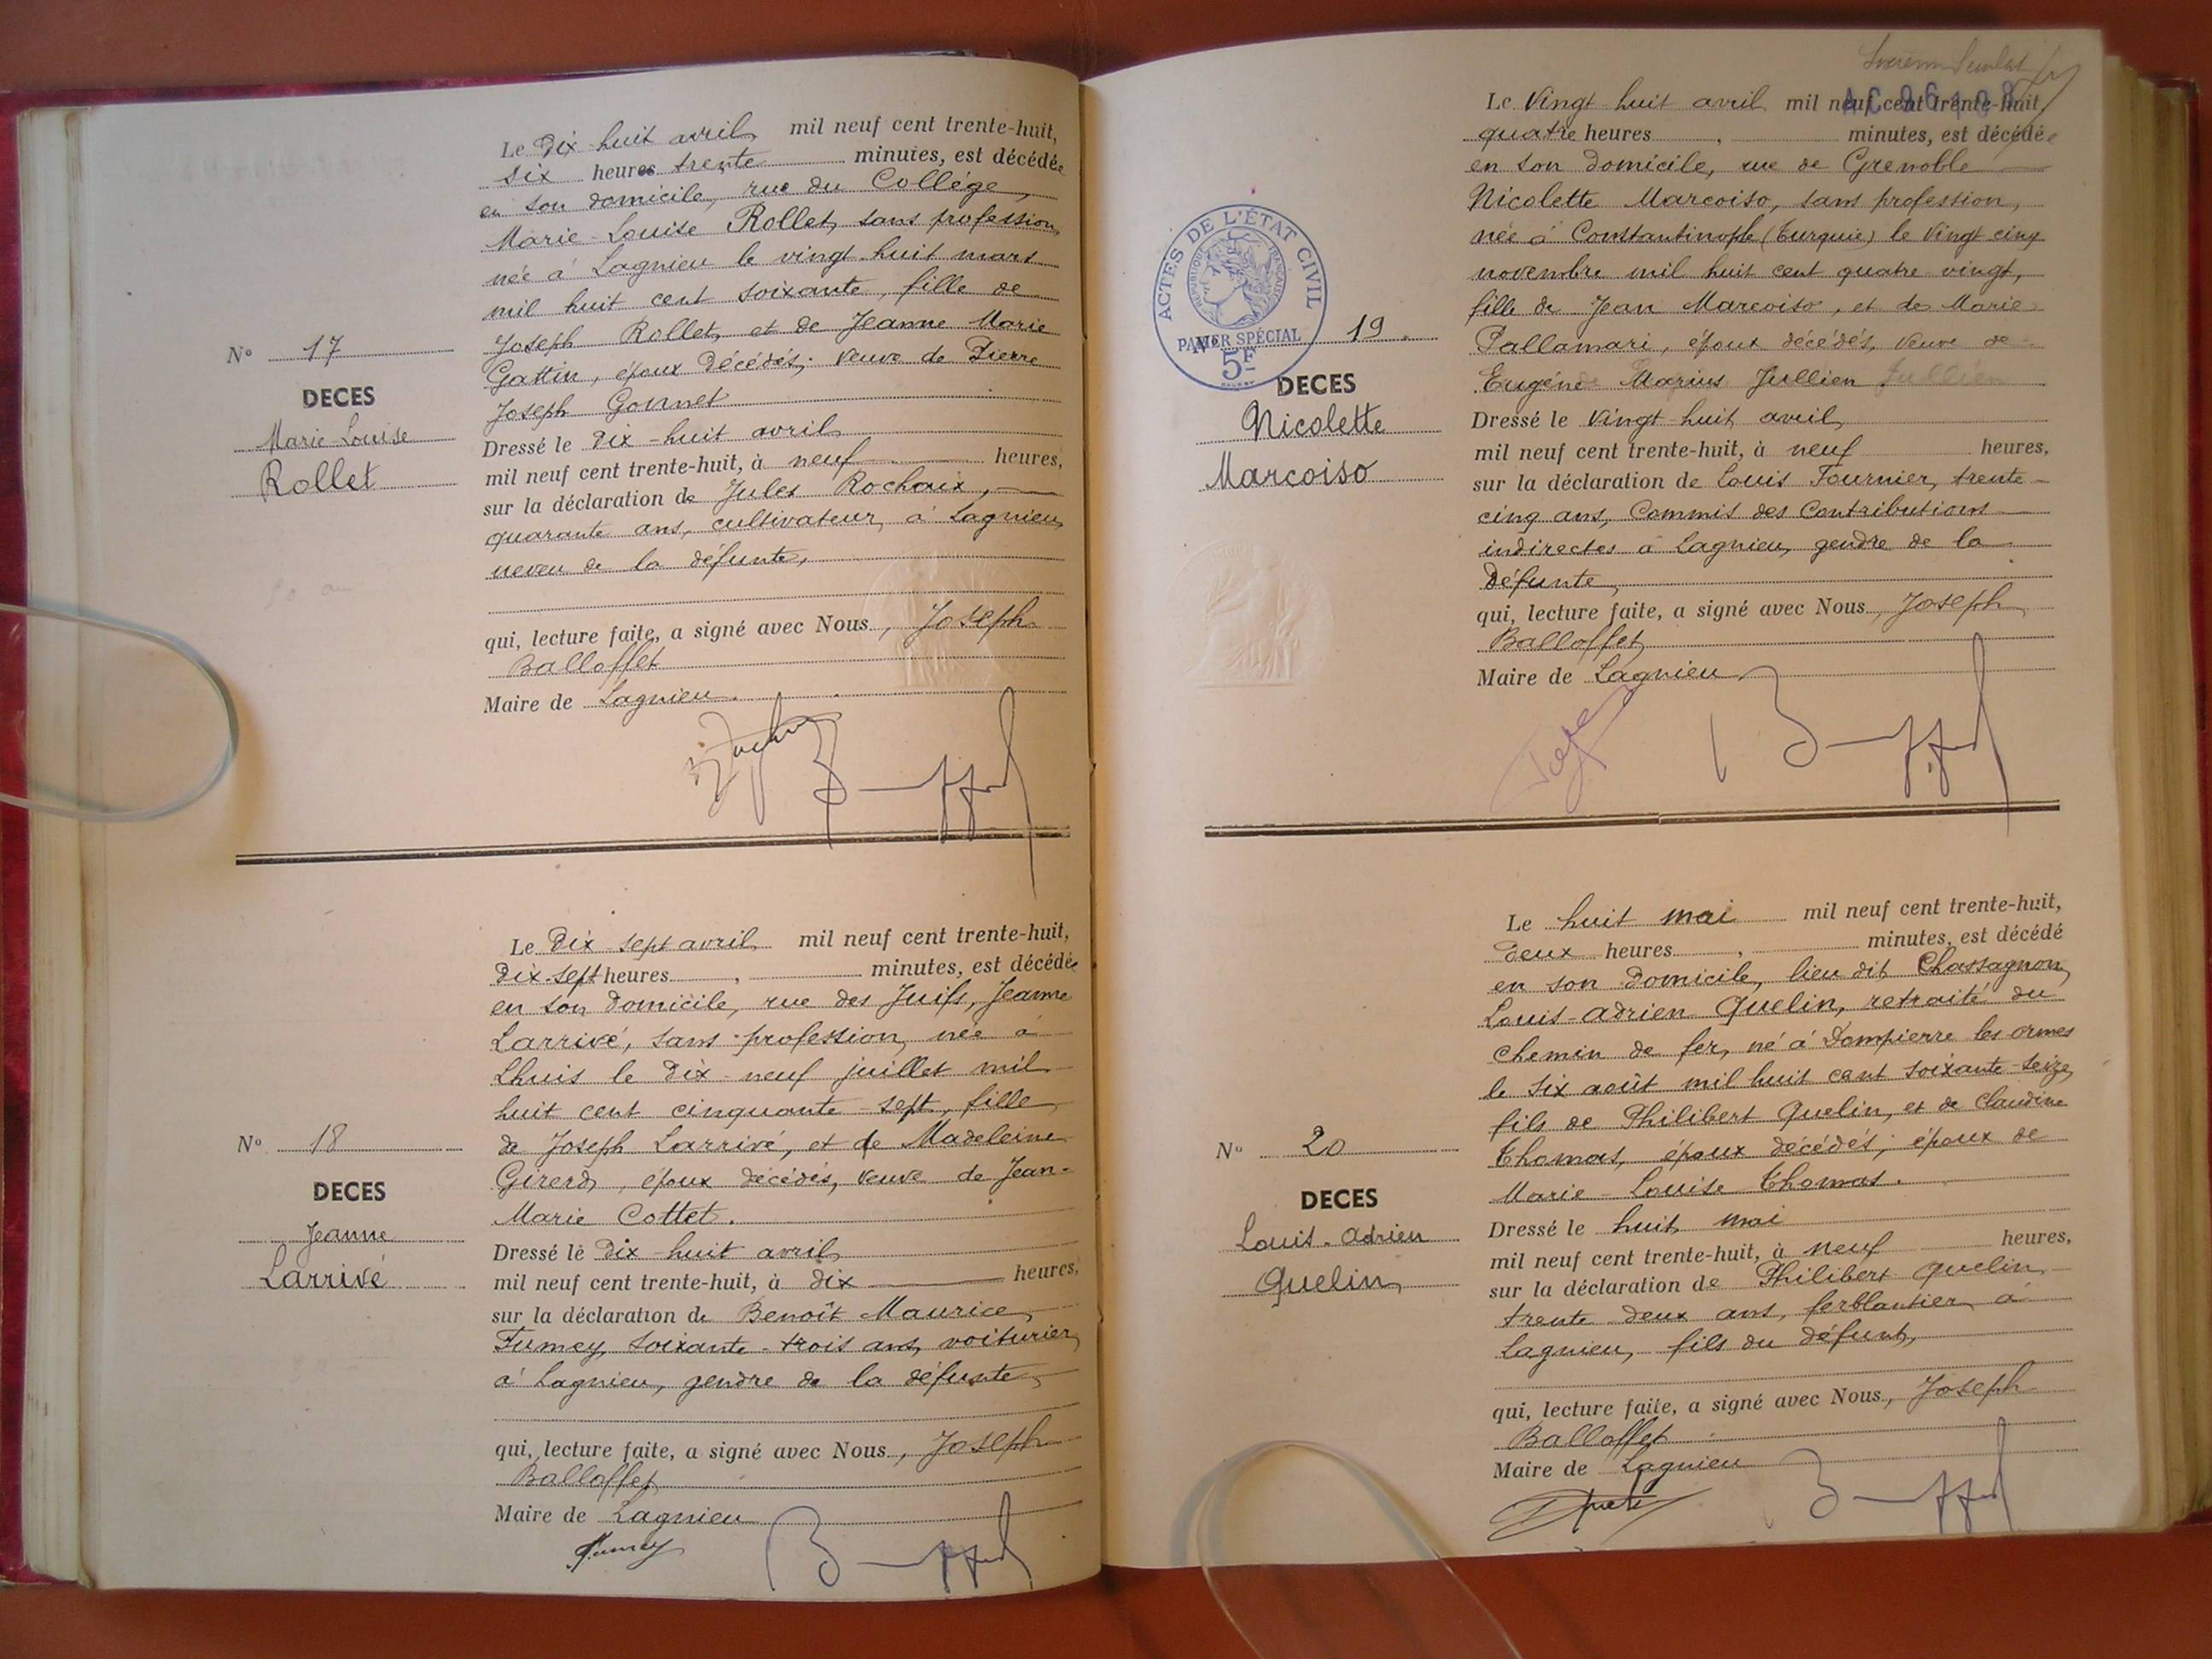 Nº 17
DECES
Marie-Louise
Rollet
Le Dix-huit avril mil neuf cent trente-huit,
six heures trente minutes, est décédée
en son domicile, rue du Collège,
Marie-Louise Rollet, sans profession,
née à Lagnieu le vingt-huit mars
mil huit cent soixante, fille de
Joseph Rollet, et de Jeanne Marie
Gattin, époux décédés; veuve de Pierre
Joseph Gonnet
Dressé le Dix-huit avril,
mil neuf cent trente-huit, à neuf heures,
sur la déclaration de Jules Rochaix,
quarante ans, cultivateur, à Lagnieu,
neveu de la défunte,
qui, lecture faite, a signé avec Nous, Joseph
Balloffet
Maire de Lagnieu.
Nº 18
DECES
Jeanne
Larrivé
Le Dix-sept avril, mil neuf cent trente-huit,
Dix-sept heures, minutes, est décédée
en son domicile, rue des Juifs, Jeanne
Larrivé, sans profession, née à
Lhuis le Dix-neuf juillet mil
huit cent cinquante-sept, fille
de Joseph Larrivé, et de Madeleine
Girerd, époux décédés, veuve de Jean-
Marie Cottet.
Dressé le Dix-huit avril,
mil neuf cent trente-huit, à dix heures,
sur la déclaration de Benoît Maurice
Fumey, soixante-trois ans, voiturier,
à Lagnieu, gendre de la défunte,
qui, lecture faite, a signé avec Nous, Joseph
Balloffet,
Maire de Lagnieu
Fumey
AC 96
ACTES DE L'ÉTAT CIVIL
RÉPUBLIQUE FRANÇAISE
PAPIER SPÉCIAL
5F
Nº 19.
DECES
Nicolette
Marcoiso
Le Vingt-huit avril mil neuf cent trente-huit,
quatre heures, minutes, est décédée
en son domicile, rue de Grenoble
Nicolette Marcoiso, sans profession,
née à Constantinople (Turquie) le Vingt cinq
novembre mil huit cent quatre vingt,
fille de Jean Marcoiso, et de Marie
Pallamari, époux décédés, veuve de
Eugène Marius Jullien
Dressé le Vingt-huit avril,
mil neuf cent trente-huit, à neuf heures,
sur la déclaration de Louis Fournier, trente-
cinq ans, Commis des Contributions
indirectes à Lagnieu, gendre de la
Défunte,
qui, lecture faite, a signé avec Nous, Joseph
Balloffet,
Maire de Lagnieu
Nº 20
DECES
Louis-Adrien
Quelin
Le huit mai mil neuf cent trente-huit,
Deux heures, minutes, est décédé
en son domicile, lieu dit Chassagnon,
Louis-Adrien Quelin, retraité du
chemin de fer, né à Dompierre les ormes
le six août mil huit cent soixante-seize,
fils de Philibert Quelin, et de Claudine
Thomas, époux décédés; époux de
Marie-Louise Thomas.
Dressé le huit mai
mil neuf cent trente-huit, à neuf heures,
sur la déclaration de Philibert Quelin,
trente-deux ans, ferblantier à
Lagnieu, fils du défunt,
qui, lecture faite, a signé avec Nous, Joseph
Balloffet
Maire de Lagnieu